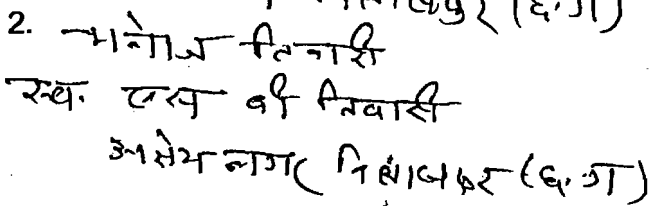 (छ.ग)
2. मनोज तिवारी
स्व. एस बी तिवारी
नगर बिलासपुर (छ.ग)